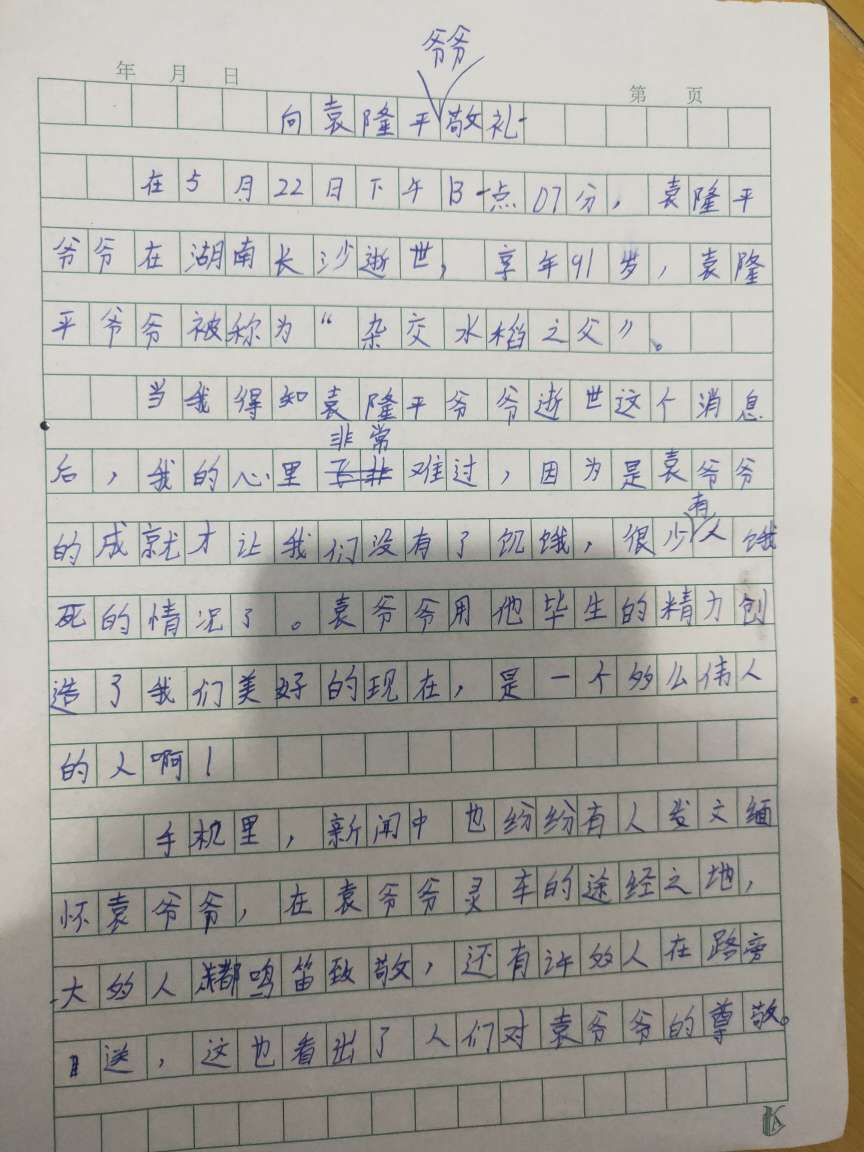 爷爷
年 月 日
第 页
向袁隆平敬礼
在5月22日下午13点07分，袁隆平
爷爷在湖南长沙逝世，享年91岁，袁隆
平爷爷被称为“杂交水稻之父”。
当我得知袁隆平爷爷逝世这个消息
非常
后，我的心里难过，因为是袁爷爷
有
的成就才让我们没有了饥饿，很少人饿
死的情况了。袁爷爷用他毕生的精力创
造了我们美好的现在，是一个多么伟人
的人啊！
手机里，新闻中也纷纷有人发文缅
怀袁爷爷，在袁爷爷灵车的途经之地，
大多人都鸣笛致敬，还有许多人在路旁
送，这也看出了人们对袁爷爷的尊敬。